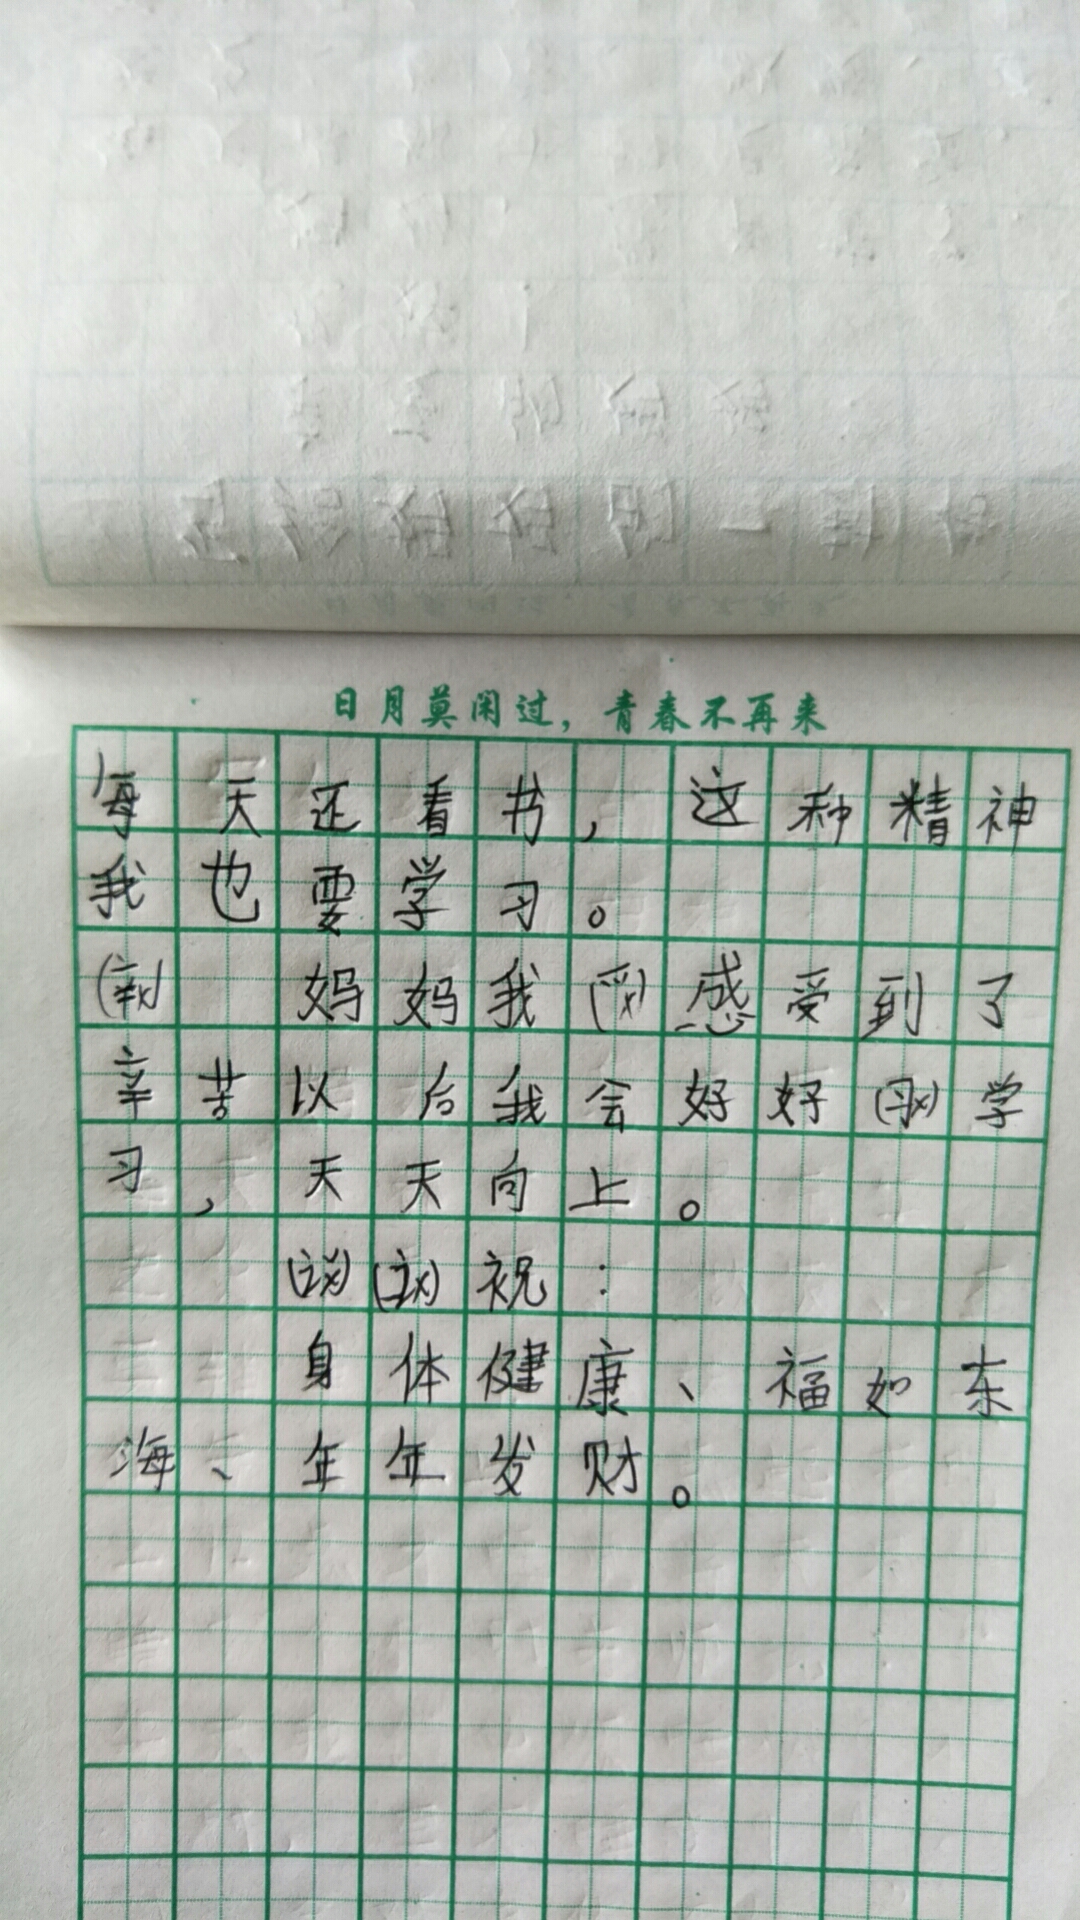 日月莫闲过，青春不再来
每天还看书，这种精神
我也要学习。
妈妈我感受到了
辛苦以后我会好好学
习，天天向上。
祝：
身体健康、福如东
海、年年发财。